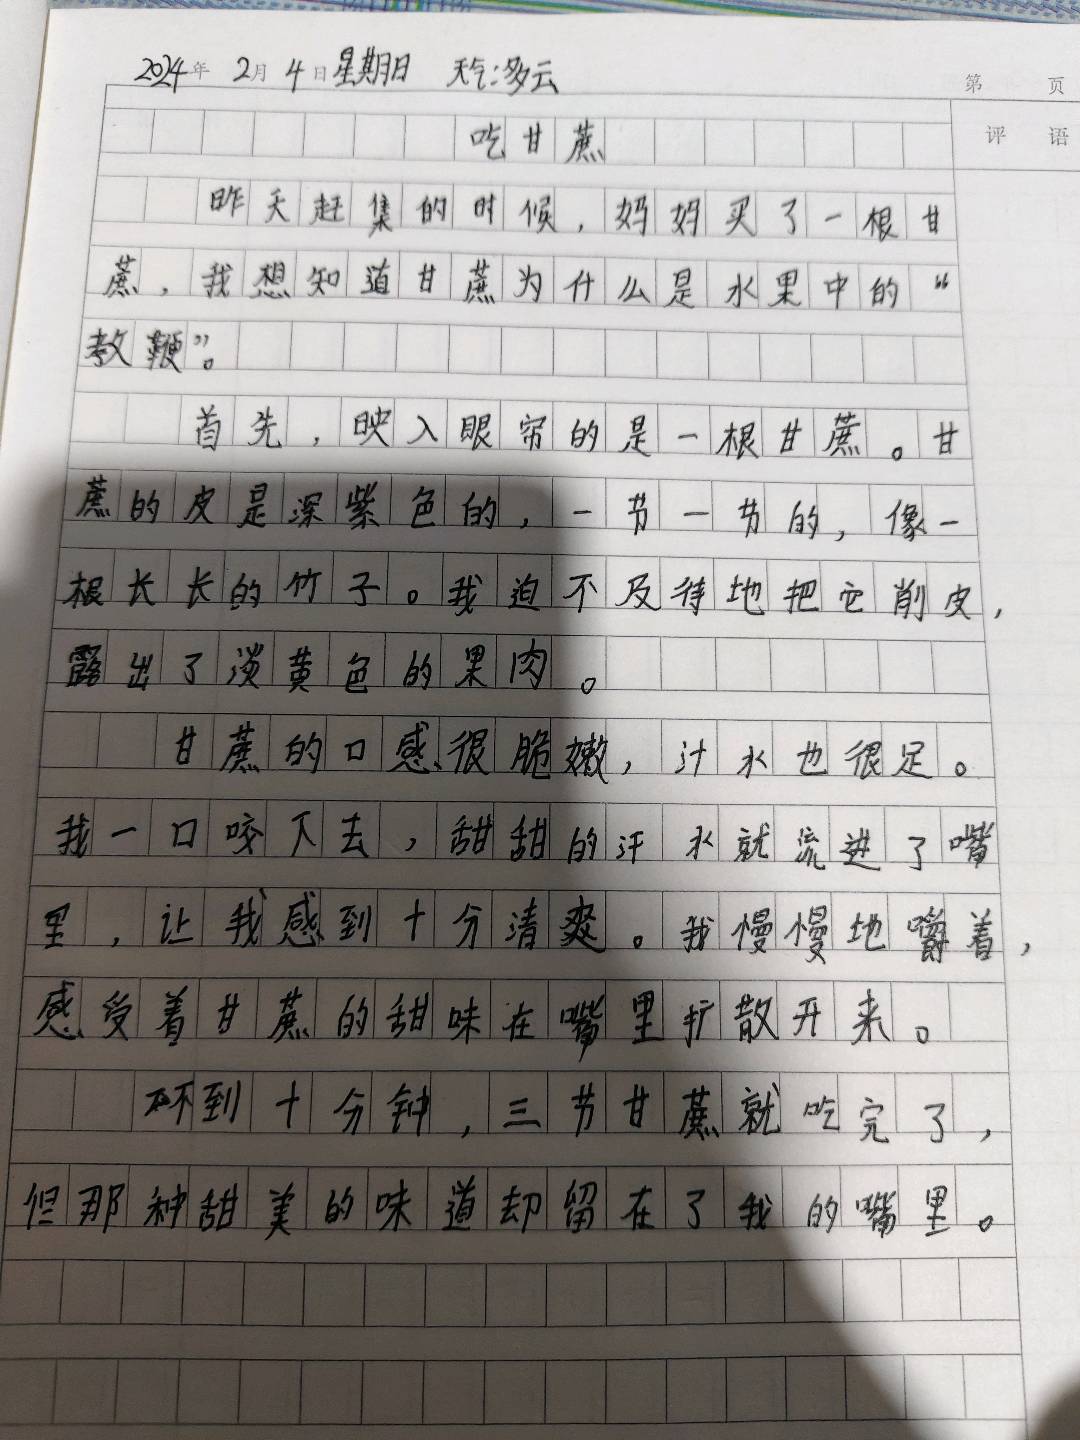 2024年 2月 4日 星期日 天气:多云
第 页
评 语
吃甘蔗
昨天赶集的时候，妈妈买了一根甘
蔗，我想知道甘蔗为什么是水果中的“
教鞭”。
首先，映入眼帘的是一根甘蔗。甘
蔗的皮是深紫色的，一节一节的，像一
根长长的竹子。我迫不及待地把它削皮，
露出了淡黄色的果肉。
甘蔗的口感很脆嫩，汁水也很足。
我一口咬下去，甜甜的汁水就流进了嘴
里，让我感到十分清爽。我慢慢地嚼着，
感受着甘蔗的甜味在嘴里扩散开来。
不到十分钟，三节甘蔗就吃完了，
但那种甜美的味道却留在了我的嘴里。